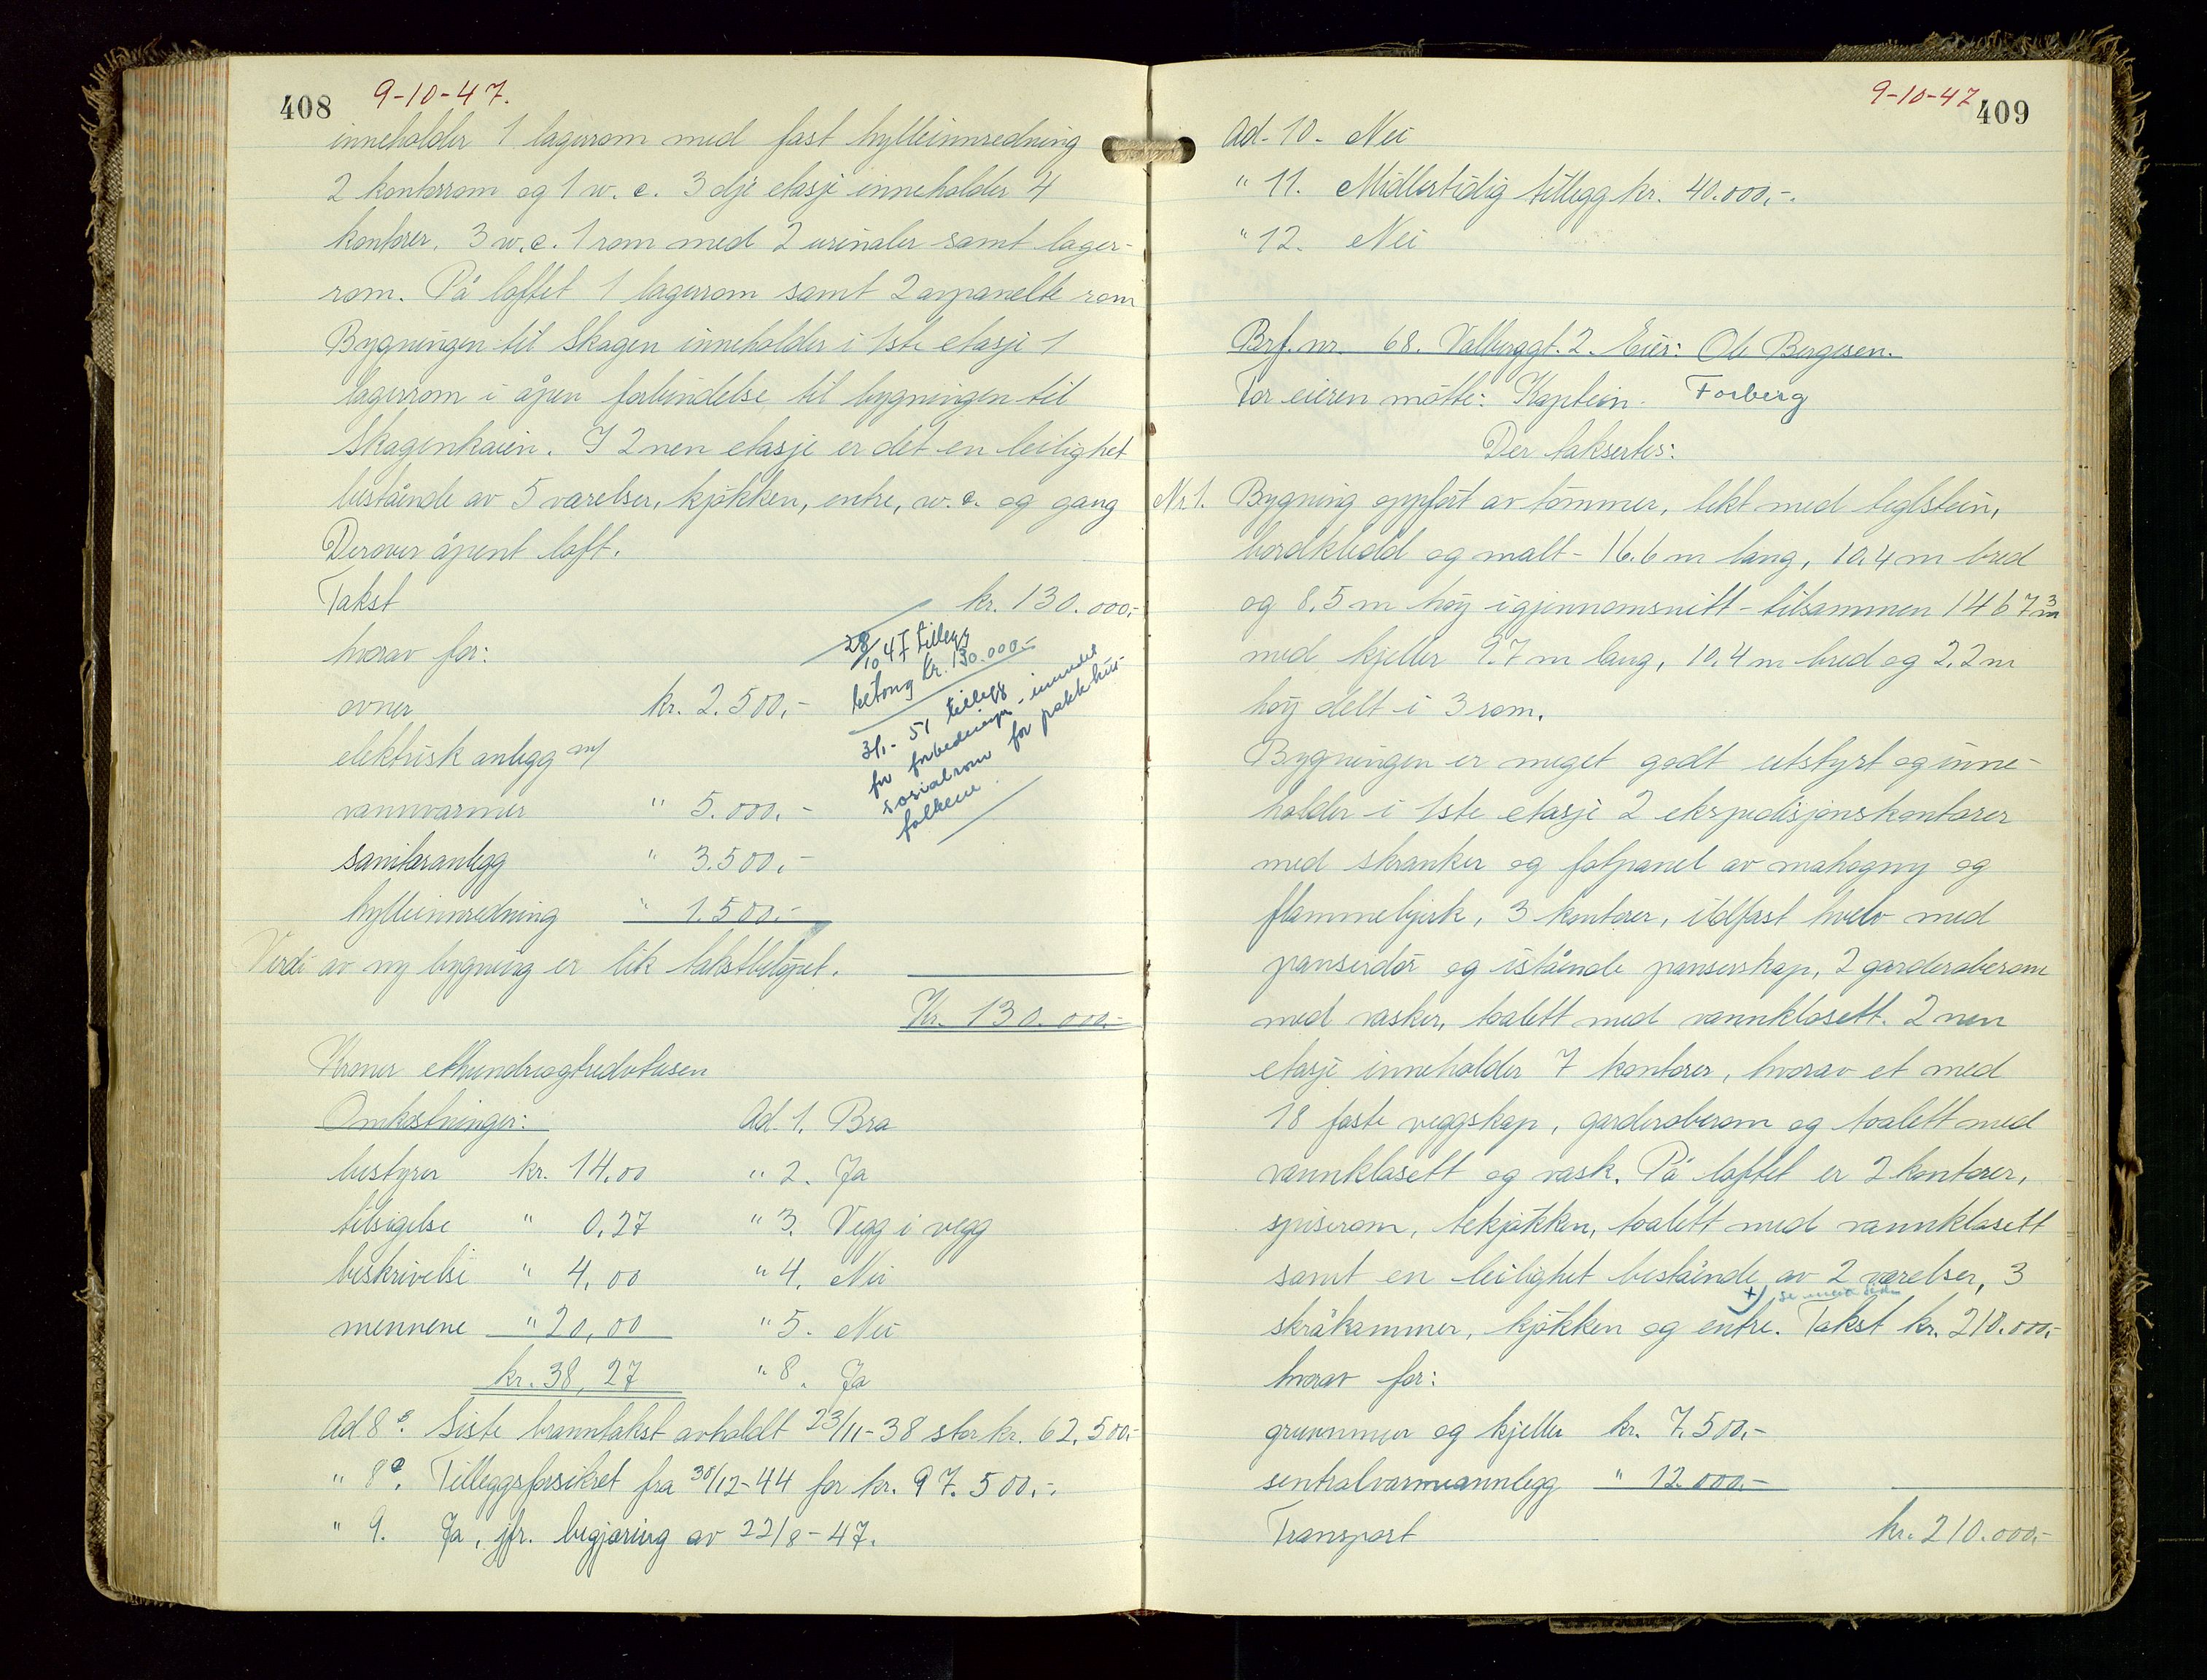 408 9-10-47.
inneholder 1 lagerrom med fast hylleinnredning
2 kontorrom og 1 w.c. 3dje etasje inneholder 4
kontorer, 3 w.c. 1 rom med 2 urinaler samt lager-
rom. På loftet 1 lagerrom samt 2 avpanelte rom
Bygningen til Skagen inneholder i 1ste etasje 1
lagerrom i åpen forbindelse til bygningen til
Skagenkaien. I 2nen etasje er det en leilighet
bestående av 5 værelser, kjøkken, entre, w.c. og gang
Derover åpent loft.
Takst kr. 130.000,-
hvorav for:
ovner kr. 2.500,-
elektrisk anlegg m/
vannvarmer " 5.000,-
sanitæranlegg " 3.500,-
hylleinnredning " 1.500,-
28/10 47 tillegg
betong kr. 130.000,-
3/1- 51 tillegg
for forbedringer - innredet
sosialrom for pakkhus-
folkene.
Verdi av ny bygning er lik takstbeløpet.
Kr. 130.000,-
Kroner etthundreogtredvetusen
Omkostninger: Ad. 1. Bra
bestyrer kr. 14,00 " 2. Ja
tilsigelse " 0,27 " 3. Vegg i vegg
beskrivelse " 4,00 " 4. Nei
mennene " 20,00 " 5. Nei
kr. 38,27 " 8. Ja
Ad 8 Siste branntakst avholdt 23/11-38 stor kr. 62.500,-
" 8 Tilleggsforsikret fra 30/12-44 for kr. 97.500,-.
" 9. Ja, jfr. begjæring av 22/8-47.
9-10-47 409
Ad. 10. Nei
" 11. Midlertidig tillegg kr. 40.000,-.
" 12. Nei
Brf. nr. 68. Valberggt. 2. Eier: Ole Bergesen.
For eieren møtte: Kaptein Forberg
Der taksertes:
Nr. 1. Bygning oppført av tømmer, tekt med teglstein,
bordkledd og malt - 16.6 m lang, 10,4 m bred
og 8,5 m høy i gjennomsnitt - tilsammen 1467 m3
med kjeller 9.7 m lang, 10,4 m bred og 2,2 m
høy delt i 3 rom.
Bygningen er meget godt utstyrt og inne-
holder i 1ste etasje 2 ekspedisjonskontorer
med skranker og fotpanel av mahogny og
flammebjørk, 3 kontorer, ildfast hvelv med
panserdør og istående panserskap, 2 garderoberom
med vasker, toalett med vannklosett. 2nen
etasje inneholder 7 kontorer, hvorav et med
18 faste veggskap, garderoberom og toalett med
vannklosett og vask. På loftet er 2 kontorer,
spiserom, tekjøkken, toalett med vannklosett
samt en leilighet bestående av 2 værelser, 3
+) se neste side
skråkammer, kjøkken og entre. Takst kr. 210.000,-
hvorav for:
grunnmur og kjeller kr. 7.500,-
sentralvarmeannlegg " 12.000,-
Transport kr. 210.000,-